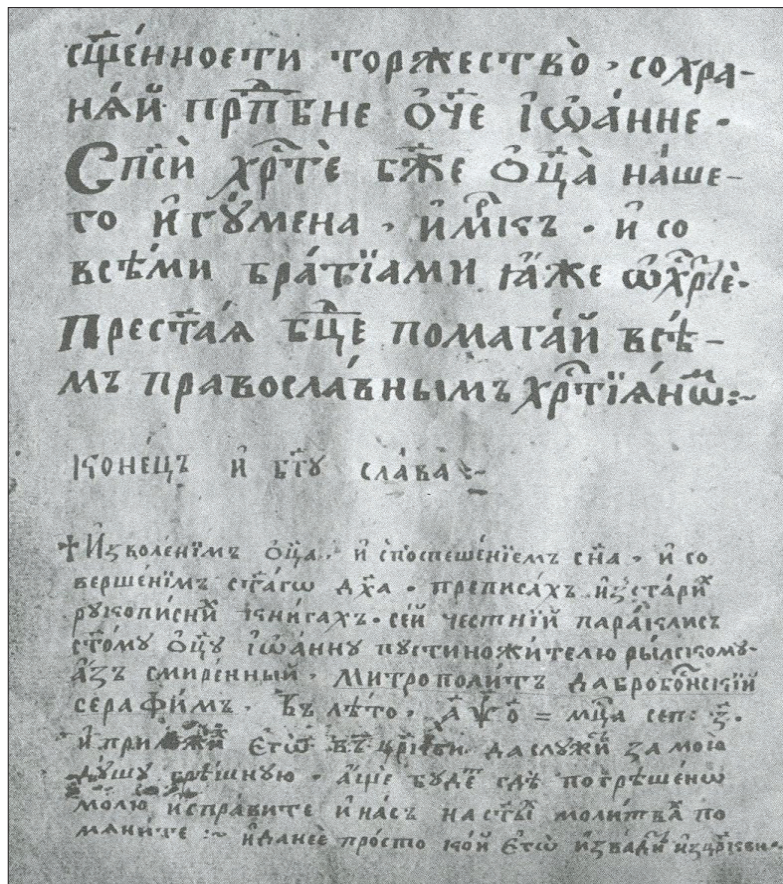 сщ҃е́нности торжество̀ , сохра-
нѧ́й прⷣпⷣбне ѻ҆́ч҃е і҆ѡа́нне .
Сп҃сѝ хрⷭ҇тѐ бж҃е ѻ҆ц҃а̀ на́ше-
го и҆гꙋ́мена , и҆мⷬ҇къ . и҆ со
всѣ́ми бра́тїами ꙗ҆́же ѡ҆ хрⷭ҇тѐ .
Прест҃а́ѧ бц҃е помага́й всѣ́-
мъ правосла́внымъ хрⷭ҇тїѧ́нѡⷨ :~
коне́цъ и҆ бг҃у сла́ва :~
✝ И҆зволе́нїмъ ѻ҆ц҃а . и҆ споспеше́нїемъ сн҃а . и҆ со
верше́нїмъ ст҃а́гѡ дх҃а . преписа́хъ и҆з̾ста́риⷯ
рукописниⷯ кни́гахъ . се́й че́стнїй пара́клисъ
ст҃о́му ѻ҆ц҃у і҆ѡа́нну пустиножи́телю ры́лскому .
а҆́зъ смире́нный . Митрополи́тъ дабробо́снскїй
серафи́мъ . Въ лѣ́то . ҂аѱо҃ = мцⷭ҇а сеп : з҃ .
и҆ прило́жиⷯ є҆́тѡ въ цр҃кви да слу́жи за мою
ду́шу грѣ́шную . а҆́ще бу́деⷮ гдѣ̀ погрѣше́нѡ
молю̀ испра́вите и҆ на́съ на ст҃ыⷯ моли́тваⷯ по
мѧни́те :~ и҆ да не́е про́сто ко́й є҆́тѡ и҆зва́ди и҆з̾цр҃кви .